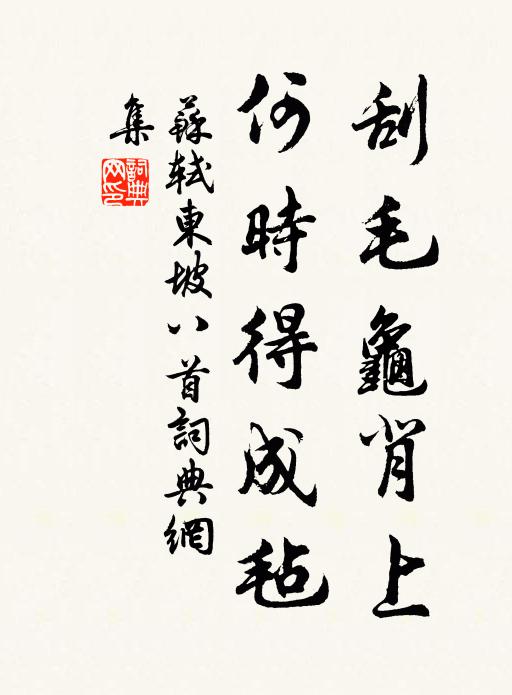 刮毛龜背上
何時得成毡
蘇軾東坡八首詞典網
集
詞典
网印